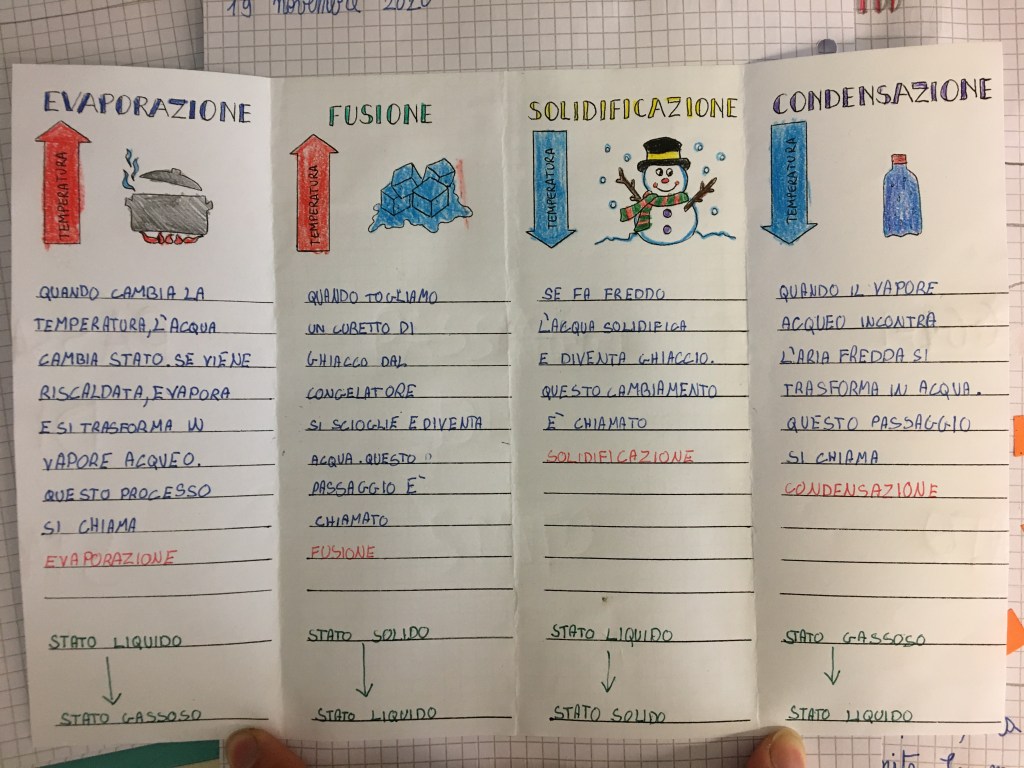 19 novembre 2020
EVAPORAZIONE
TEMPERATURA
QUANDO CAMBIA LA
TEMPERATURA, L'ACQUA
CAMBIA STATO. SE VIENE
RISCALDATA, EVAPORA
E SI TRASFORMA IN
VAPORE ACQUEO.
QUESTO PROCESSO
SI CHIAMA
EVAPORAZIONE
STATO LIQUIDO
STATO GASSOSO
FUSIONE
TEMPERATURA
QUANDO TOGLIAMO
UN CUBETTO DI
GHIACCO DAL
CONGELATORE
SI SCIOGLIE E DIVENTA
ACQUA. QUESTO
PASSAGGIO È
CHIAMATO
FUSIONE
STATO SOLIDO
STATO LIQUIDO
SOLIDIFICAZIONE
TEMPERATURA
SE FA FREDDO
L'ACQUA SOLIDIFICA
E DIVENTA GHIACCIO.
QUESTO CAMBIAMENTO
È CHIAMATO
SOLIDIFICAZIONE
STATO LIQUIDO
STATO SOLIDO
CONDENSAZIONE
TEMPERATURA
QUANDO IL VAPORE
ACQUEO INCONTRA
L'ARIA FREDDA SI
TRASFORMA IN ACQUA.
QUESTO PASSAGGIO
SI CHIAMA
CONDENSAZIONE
STATO GASSOSO
STATO LIQUIDO